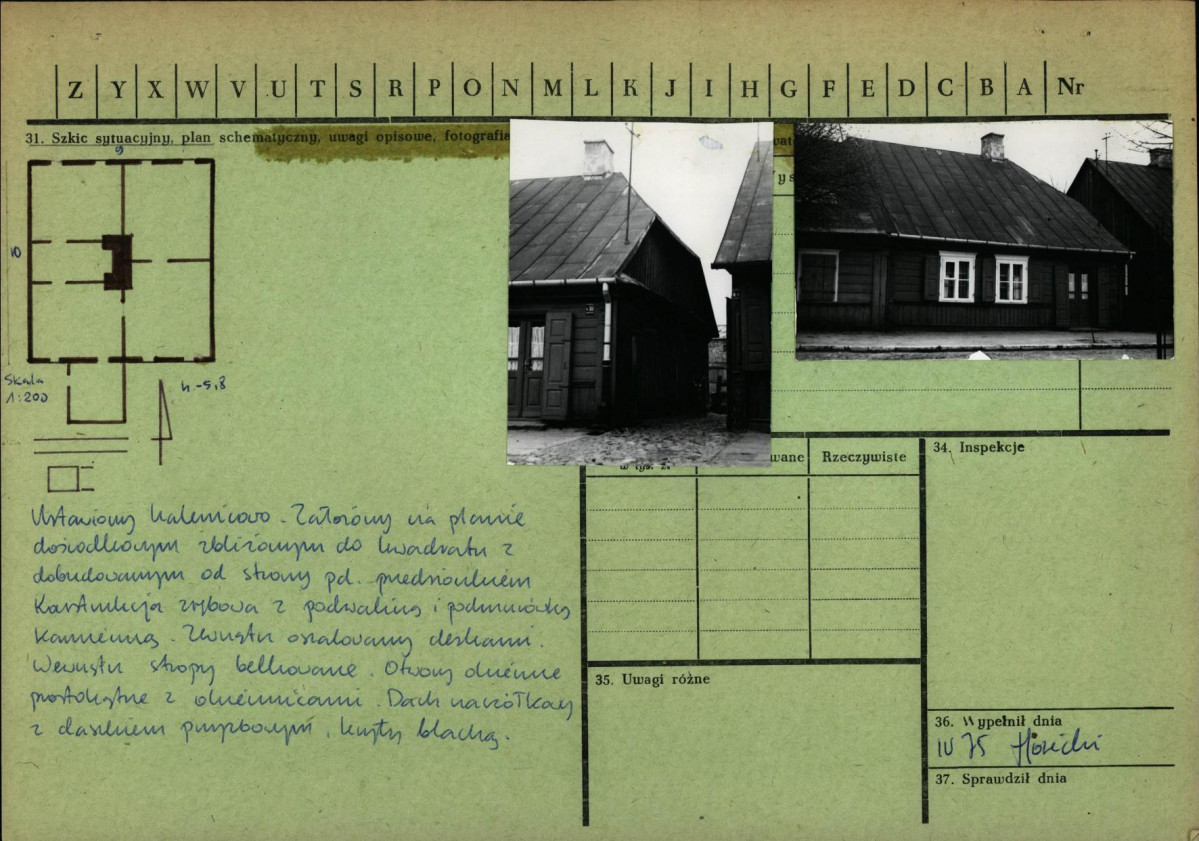 Z Y X W V U T S R P O N M L K J I H G F E D C B A Nr
31. Szkic sytuacyjny, plan schematyczny, uwagi opisowe, fotografia
9
10
Skala
1:200
h-5,8
Ustawiony kalenicowo. Założony na planie
dośrodkowym zbliżonym do kwadratu z
dobudowanym od strony pd. przedsionkiem
Konstrukcja zrębowa z podwaliną i podmurówką
kamienną. Zewnątrz oszalowany deskami.
Wewnątrz stropy belkowane. Otwory okienne
prostokątne z okiennicami. Dach naczółkowy
z daszkiem przyzbowym, kryty blachą.
w tys. z.
wane
Rzeczywiste
34. Inspekcje
35. Uwagi różne
36. Wypełnił dnia
IV 75
37. Sprawdził dnia